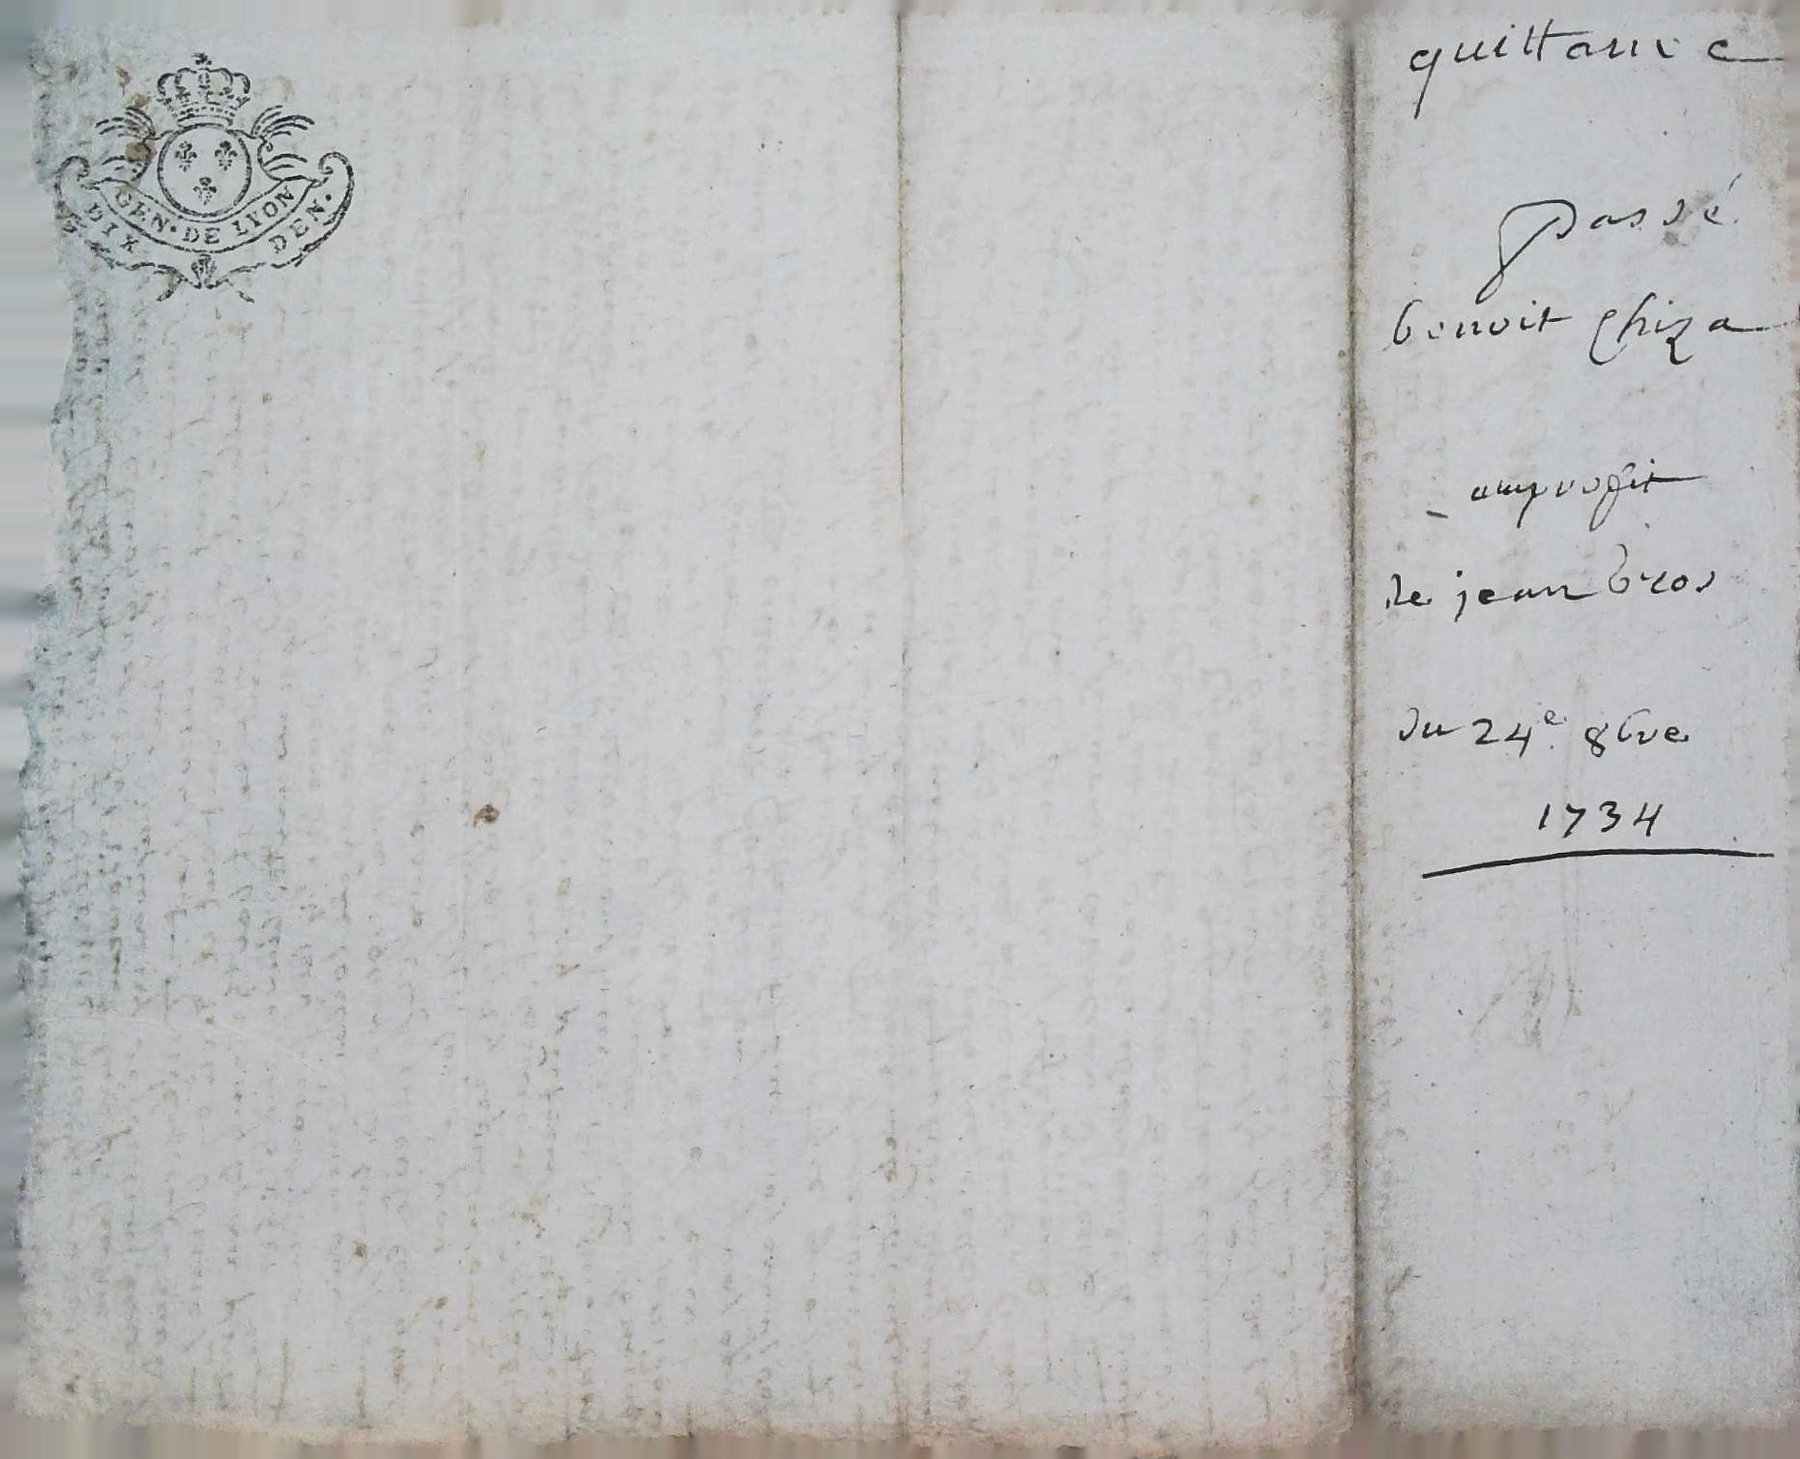 GEN. DE LION
DIX DEN.
quittance
passé
benoit Chiza
au profit
de jean bros
du 24e 8bre
1734